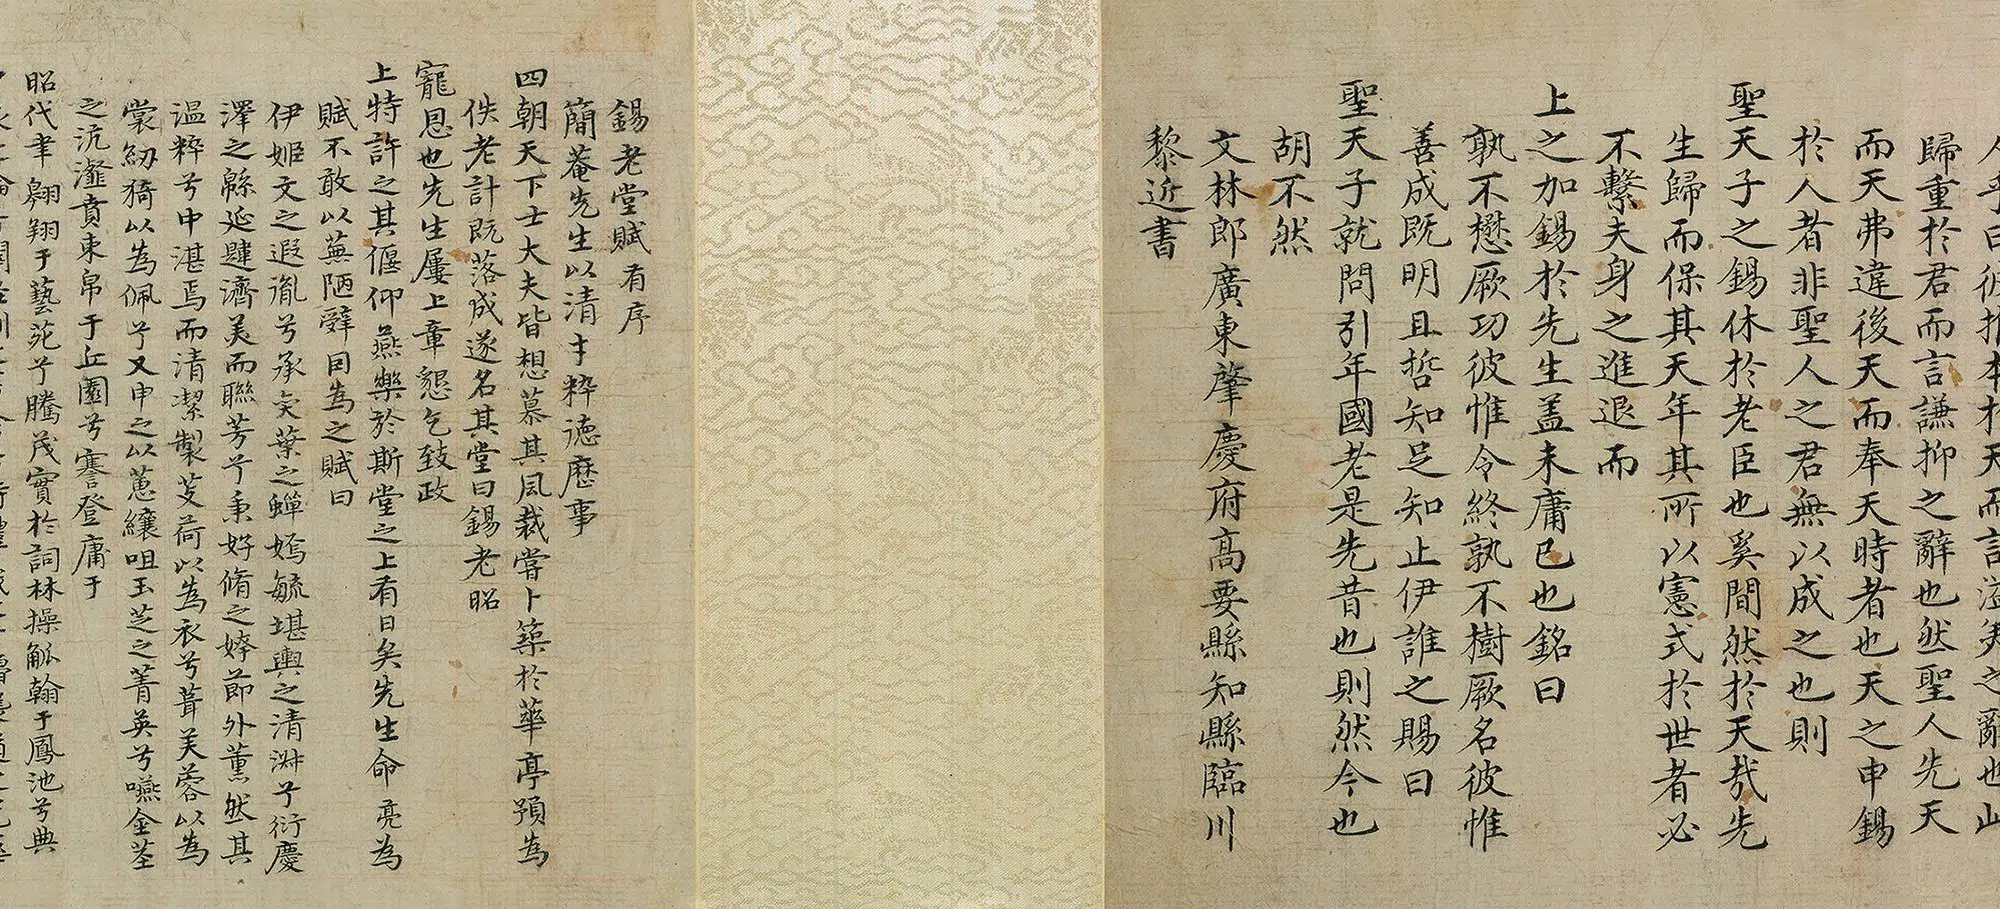 乎曰彼推本於天而言溢美之辭也此
歸重於君而言謙抑之辭也然聖人先天
而天弗違後天而奉天時者也天之申錫
於人者非聖人之君無以成之也則
聖天子之錫休於老臣也奚間然於天哉先
生歸而保其天年其所以憲式於世者必
不繫夫身之進退而
上之加錫於先生盖未庸已也銘曰
孰不懋厥功彼惟令終孰不樹厥名彼惟
善成既明且哲知足知止伊誰之賜曰
聖天子就問引年國老是先昔也則然今也
胡不然
文林郎廣東肇慶府高要縣知縣臨川
黎近書
錫老堂賦有序
簡菴先生以清才粹德歷事
四朝天下士大夫皆想慕其風裁嘗卜築於華亭預為
佚老計既落成遂名其堂曰錫老昭
寵恩也先生屢上章懇乞致政
上特許之其偃仰燕樂於斯堂之上有日矣先生命亮為
賦不敢以蕪陋辭因為之賦曰
伊姬文之遐胤兮承奕葉之蟬嫣毓堪輿之清淑兮衍慶
澤之緜延肆濟美而聯芳兮秉好脩之姱節外薰然其
溫粹兮中湛焉而清潔製芰荷以為衣兮葺芙蓉以為
裳紉猗以為佩兮又申之以蕙纕咀玉芝之菁英兮嚥金莖
之沆瀣賁束帛于丘園兮謇登庸于
昭代聿翱翔于藝苑兮騰茂實於詞林操觚翰于鳳池兮典